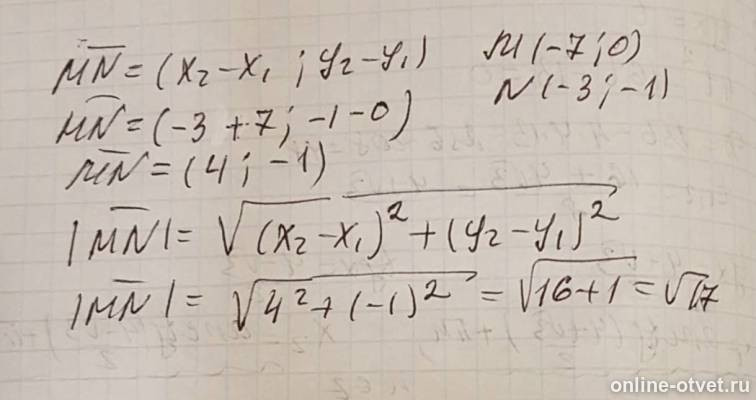 MN̅ = (x₂ - x₁ ; y₂ - y₁) M(-7 ; 0)
N(-3 ; -1)
MN̅ = (-3 + 7 ; -1 - 0)
MN̅ = (4 ; -1)
|MN̅| = √((x₂ - x₁)² + (y₂ - y₁)²)
|MN̅| = √(4² + (-1)²) = √(16 + 1) = √17
online-otvet.ru